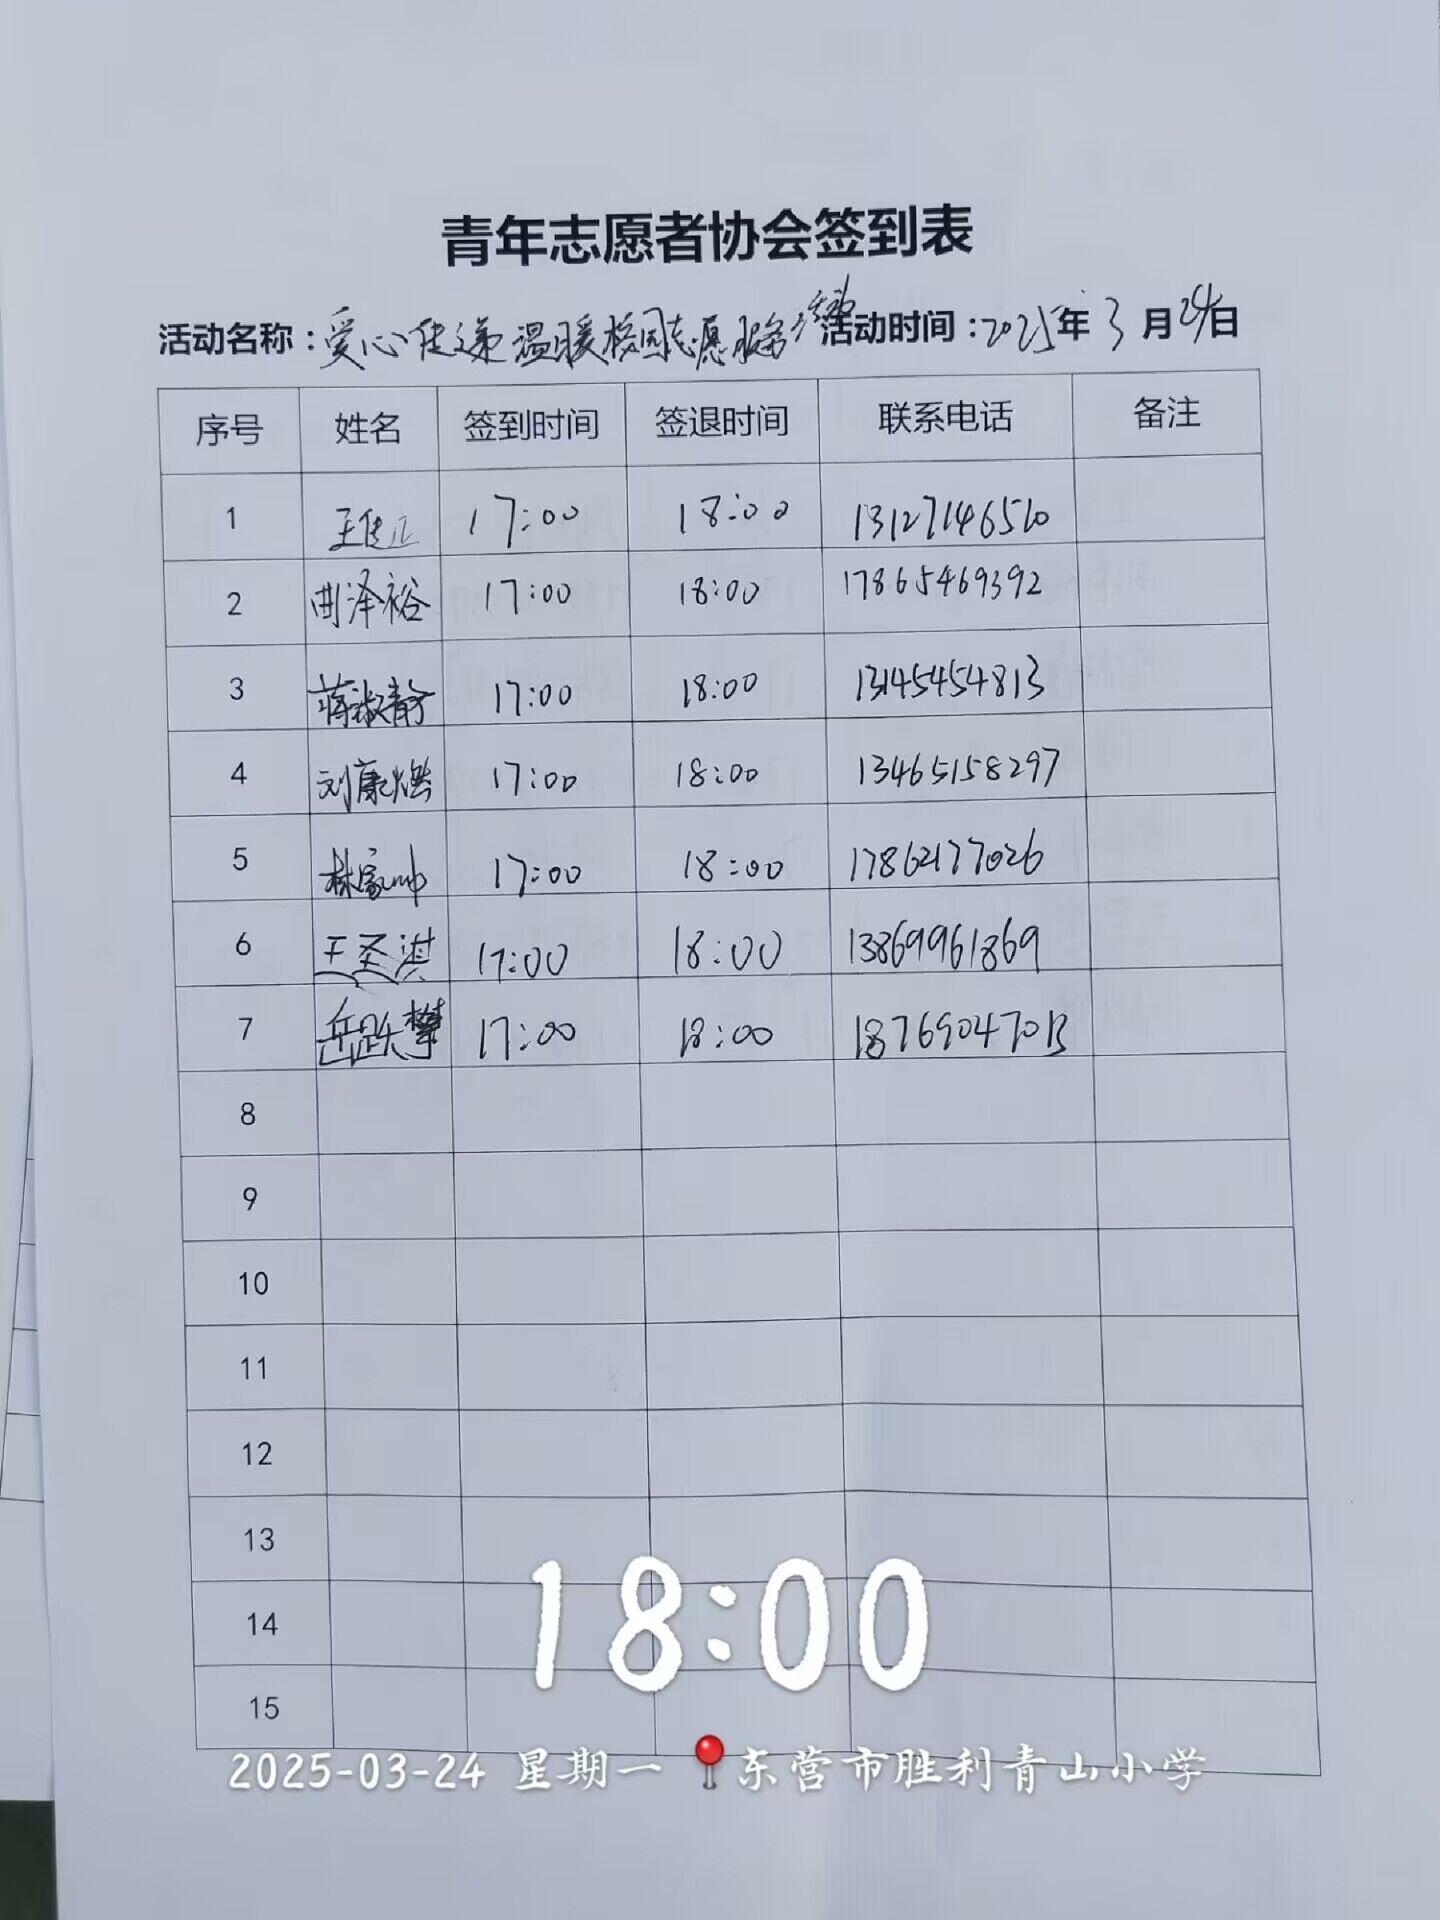 青年志愿者协会签到表
活动名称：爱心传递温暖校园志愿服务活动 活动时间：2025年3月24日
序号 姓名 签到时间 签退时间 联系电话 备注
1 王佳正 17:00 18:00 13127146510
2 曲泽裕 17:00 18:00 17865469392
3 蒋淑静 17:00 18:00 13145454813
4 刘康 17:00 18:00 13465158297
5 林家帅 17:00 18:00 17862177026
6 王圣淇 17:00 18:00 13869961869
7 岳跃攀 17:00 18:00 18769047013
8
9
10
11
12
13
14
15
18:00
2025-03-24 星期一 📍东营市胜利青山小学